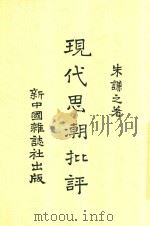 朱謙之著
現代思潮批評
新中國雜誌社出版
www.gowuku.com